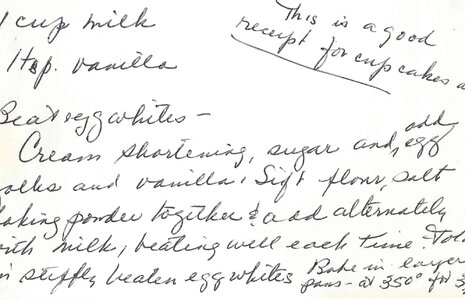 1 cup milk
1 tsp. vanilla
This is a good
receipt for cupcakes a
Beat egg whites -
Cream shortening, sugar and, add egg
olks and vanilla. Sift flour, salt
aking powder together & add alternately
ith milk, beating well each time. Fold
in stiffly beaten egg whites Bake in layer
pans - at 350° for 3